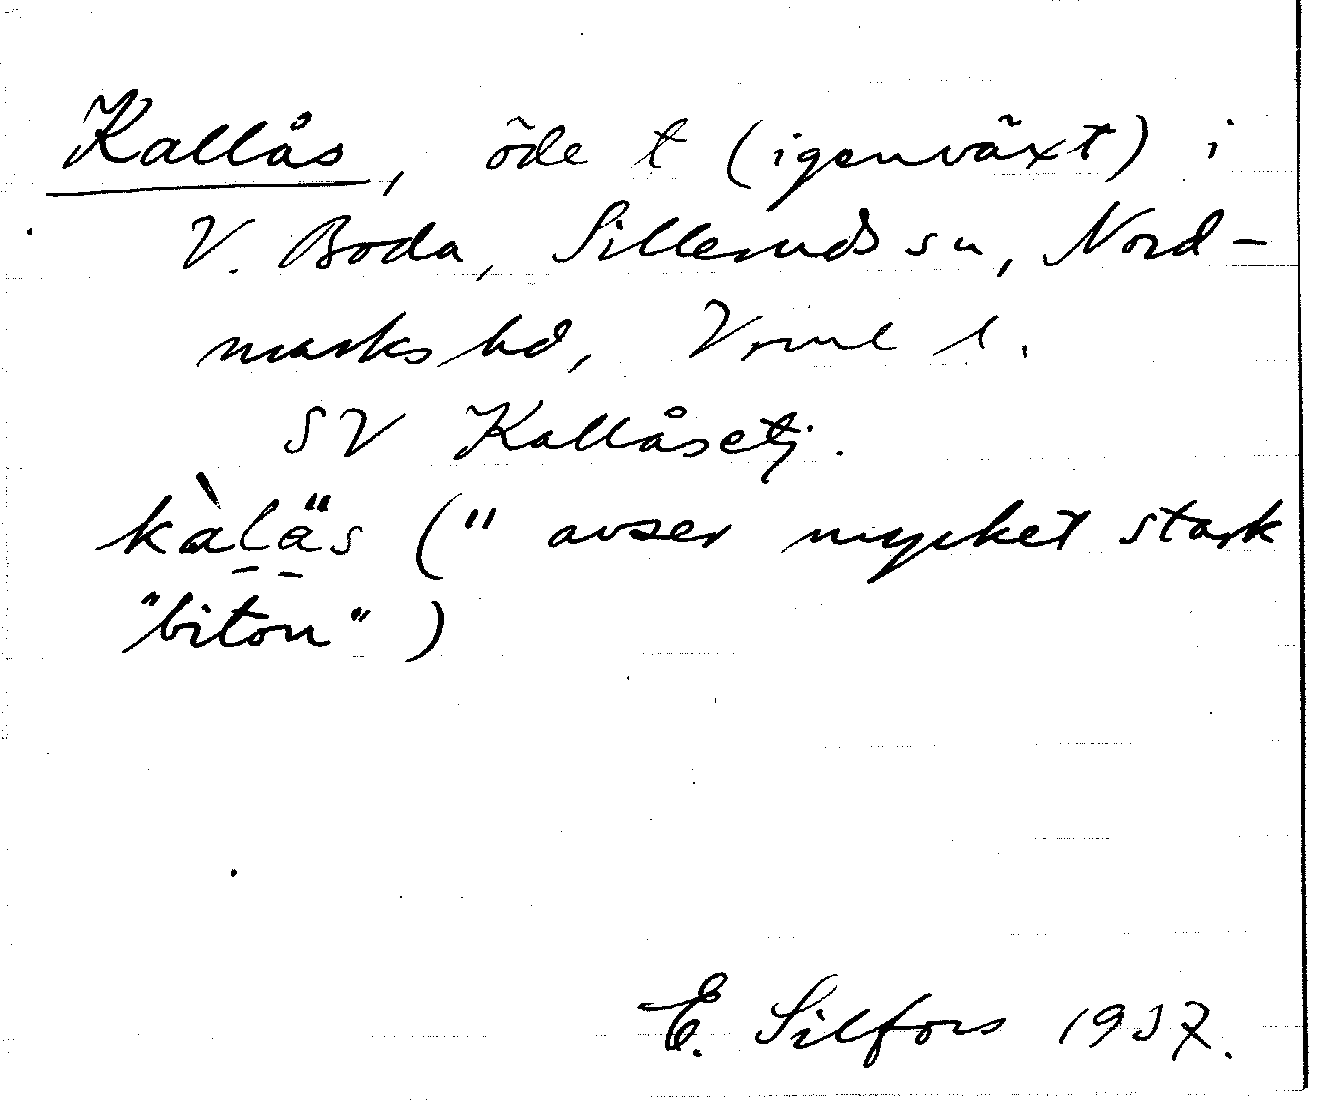 Kallås, öde t (igenväxt) i
V. Boda, Silleruds sn, Nord-
marks hd, Vrml l.
SV Kallåsetj.
kàla̎s (" avser mycket stark
"biton")
E. Silfors 1937.